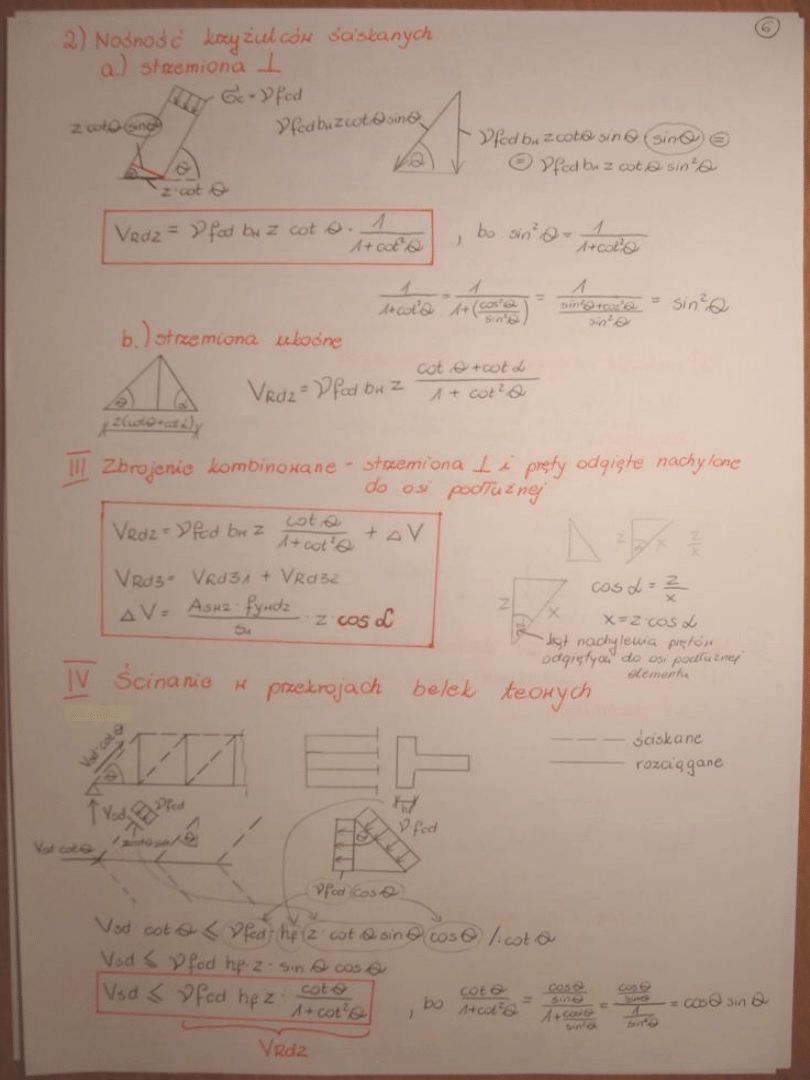 6
2) Nośność krzyżulców ściskanych
a.) strzemiona ⊥
σc = νfcd
z cotθ sinθ
θ
z·cot θ
νfcd bw z cotθ sinθ
θ
νfcd bw z cotθ sinθ (sinθ) =
= νfcd bw z cotθ sin²θ
VRd2 = νfcd bw z cot θ · 1/(1+cot²θ) , bo sin²θ = 1/(1+cot²θ)
1/(1+cot²θ) = 1/(1+(cos²θ/sin²θ)) = 1/((sin²θ+cos²θ)/sin²θ) = sin²θ
b.) strzemiona ukośne
θ α
z(cotθ+cotα)
VRd2 = νfcd bw z (cot θ + cot α)/(1 + cot²θ)
III Zbrojenie kombinowane - strzemiona ⊥ i pręty odgięte nachylone
do osi podłużnej
VRd2 = νfcd bw z cotθ/(1+cot²θ) + ΔV
VRd3 = VRd31 + VRd32
ΔV = (Asw2 · fywd2)/s2 · z cos α
z α x z/x
z α x
cos α = z/x
x = z·cos α
kąt nachylenia prętów
odgiętych do osi podłużnej
elementu
IV Ścinanie w przekrojach belek teowych
Vsd·cotθ
θ
Vsd
ściskane
rozciągane
hf
νfcd
Vsd cotθ
z cotθ sinθ
θ
νfcd
θ
νfcd cosθ
Vsd · cotθ ≤ νfcd · hf (z · cotθ sinθ) cosθ /: cotθ
Vsd ≤ νfcd hf · z · sinθ cosθ
Vsd ≤ νfcd hf z · cotθ/(1+cot²θ) , bo cotθ/(1+cot²θ) = (cosθ/sinθ)/(1+cos²θ/sin²θ) = (cosθ/sinθ)/(1/sin²θ) = cosθ sinθ
VRd2